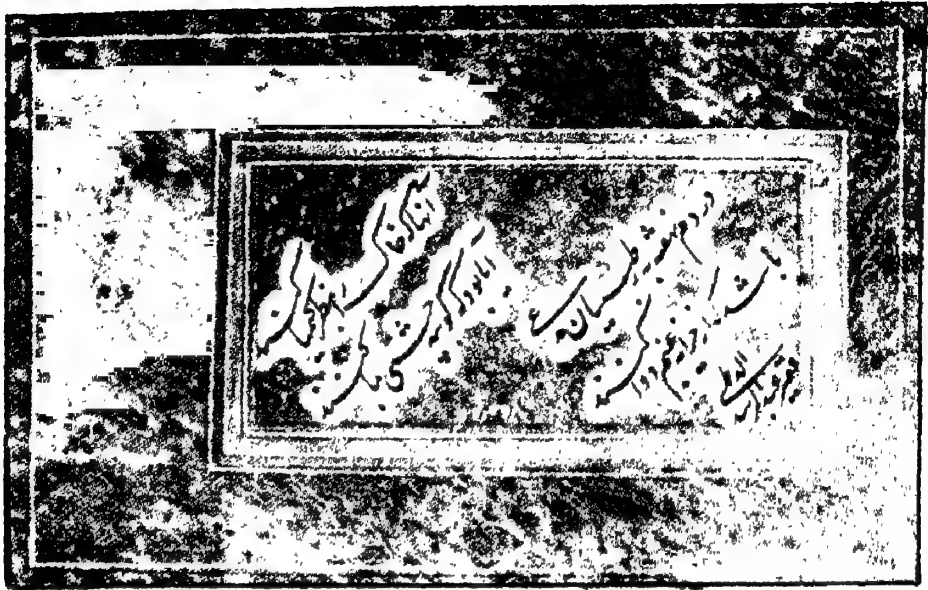 انانکه خاک را بنظر کیمیا کنند
ایا بود که گوشه چشمی بما کنند
دردم نهفته به ز طبیبان مدعی
باشد که از خزانه غیبم دوا کنند
عبدالرشید الدیلمی